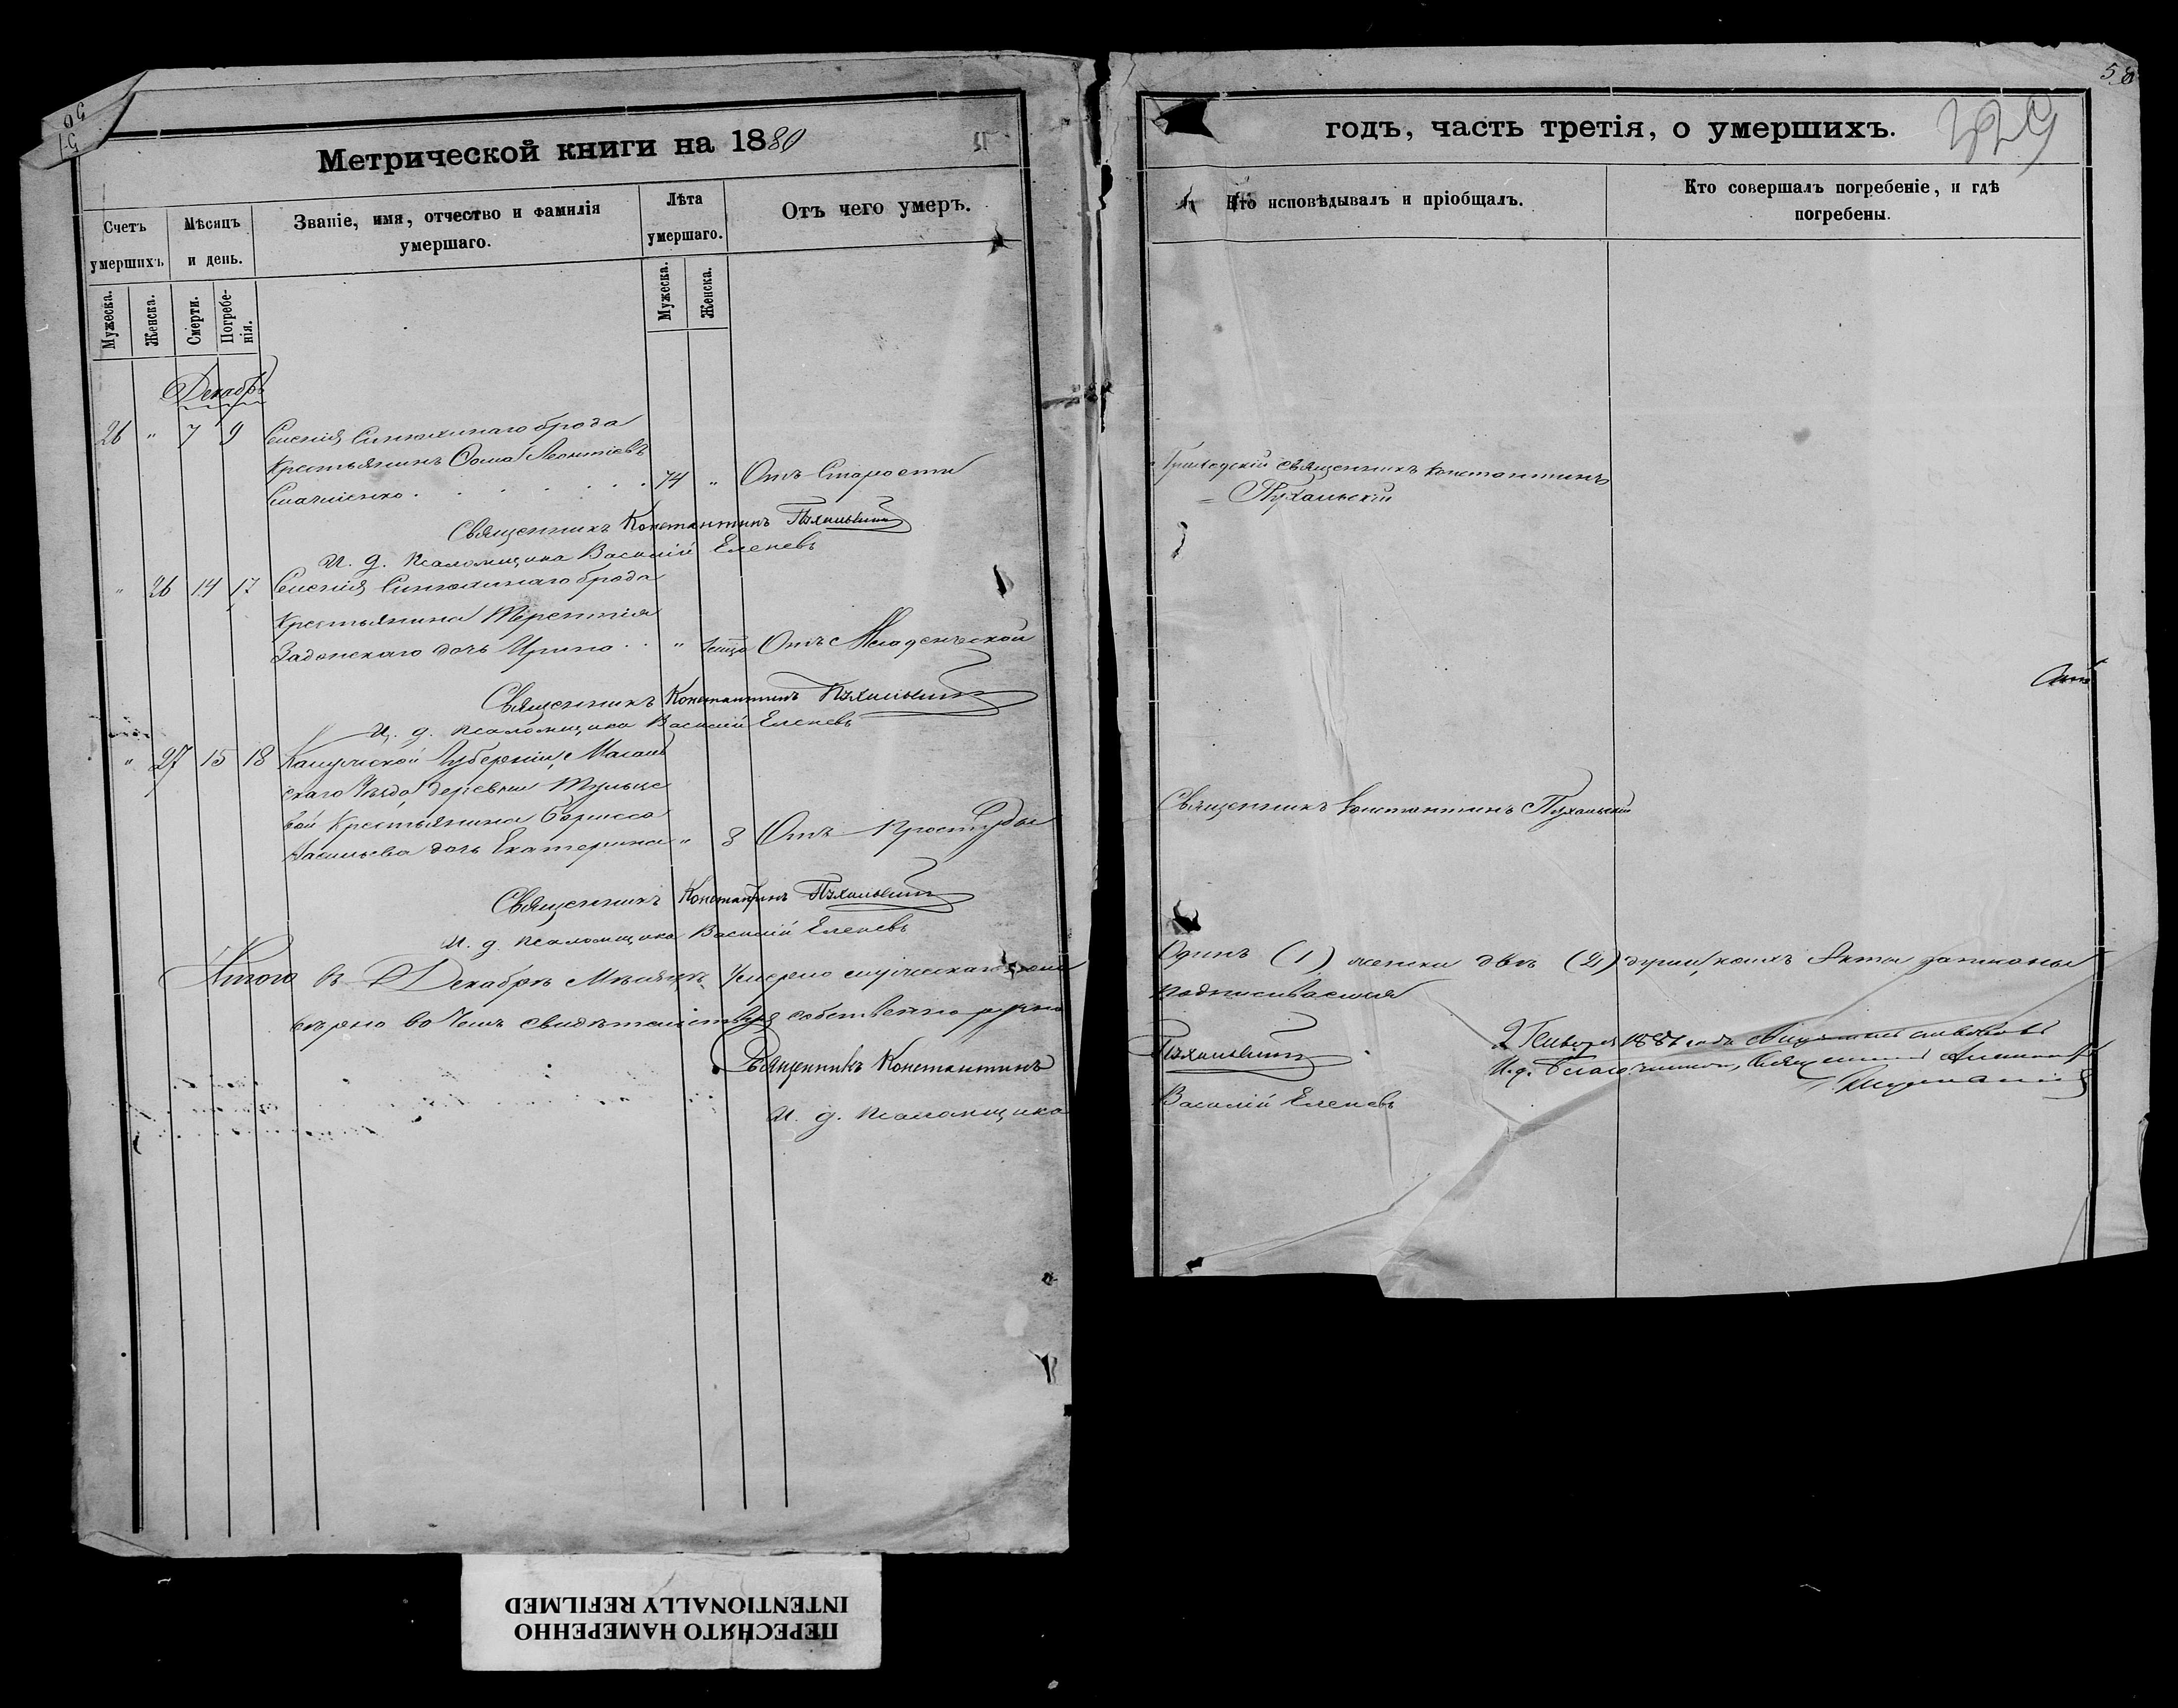 58
329
Метрической книги на 1880
годъ, часть третія, о умершихъ.
Счетъ умершихъ
Мѣсяцъ и день.
Званіе, имя, отчество и фамилія умершаго.
Лѣта умершаго.
Отъ чего умеръ.
Кто исповѣдывалъ и пріобщалъ.
Кто совершалъ погребеніе, и гдѣ погребены.
Мужеска.
Женска.
Смерти.
Погребенія.
Мужеска.
Женска.
Декабрь
26 " 7 9 Селенія Синюхинаго брода
Крестьянинъ Ѳома Леонтіевъ
74 " Отъ Старости
священникъ Константинъ
Пухальскій
Священникъ Константинъ Пухальскій
И. д. Псаломщика Василій Еленевъ
" 26 14 17 Селенія Синюхинаго брода
Крестьянина Терентія
Задонскаго дочь Ирина " Отъ Младенческой
Священникъ Константинъ Пухальскій
И. д. псаломщика Василій Еленевъ
" 27 15 18 Калужской Губерніи,
скаго Уѣзда, деревни
вой Крестьянина Бориса
Васильева дочь Екатерина " 8 Отъ Простуды
Священникъ Константинъ Пухальскій
Священникъ Константинъ Пухальскій
И. д. псаломщика Василій Еленевъ
Итого въ Декабрѣ Мѣсяцѣ Умерло мужескаго пола
Одинъ (1) женска двѣ (2) души, коихъ Акты записаны
вѣрно во чемъ свидѣтельствуя собственноручно
подписываемся
Священникъ Константинъ
Пухальскій
И. д. Псаломщика
Василій Еленевъ
2 Генваря 1881 года
И. д. Благочиннаго, Священникъ
ПЕРЕСНЯТО НАМЕРЕННО
INTENTIONALLY REFILMED